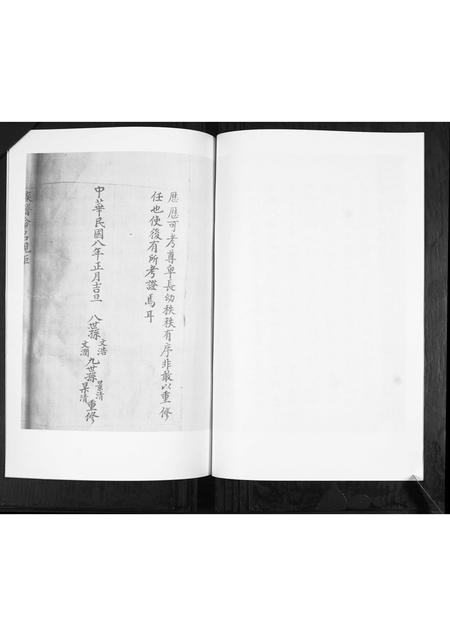 歷歷可考尊卑長幼秩秩有序非敢以重修
任也使後有所考證焉耳
中華民國八年正月吉旦 八世孫文浩文潤九世孫景清杲清重修
族譜命名規